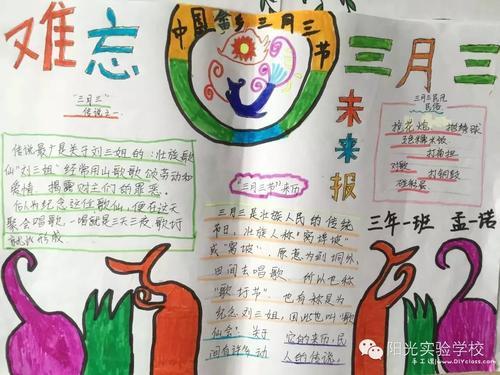 难忘
中国壮乡三月三节
三月三
未来报
"三月三"
传说之一
传说最广是关于刘三姐的:壮族歌
仙"刘三姐"经常用山歌歌颂劳动和
爱情,揭露财主们的罪恶。
后人为纪念这位歌仙,便在这天
聚会唱歌,一唱就是三天三夜,歌圩
就此形成
"三月三节"来历
三月三是壮族人民的传统
节日,壮族人称"窝埠坡"
或"窝坡",原意为到垌外、
田间去唱歌,所以也称
"歌圩节"。也有称是为
纪念刘三姐,因此也叫"歌
仙会。关于
它的来历,民
间有许多动
人的传说。
三月三民风
民俗
抢花炮、抛绣球
五色糯米饭
打扁担
对歌
打铜鼓
碰红蛋
三年一班 孟一诺
阳光实验学校
手工课www.DIYclass.com